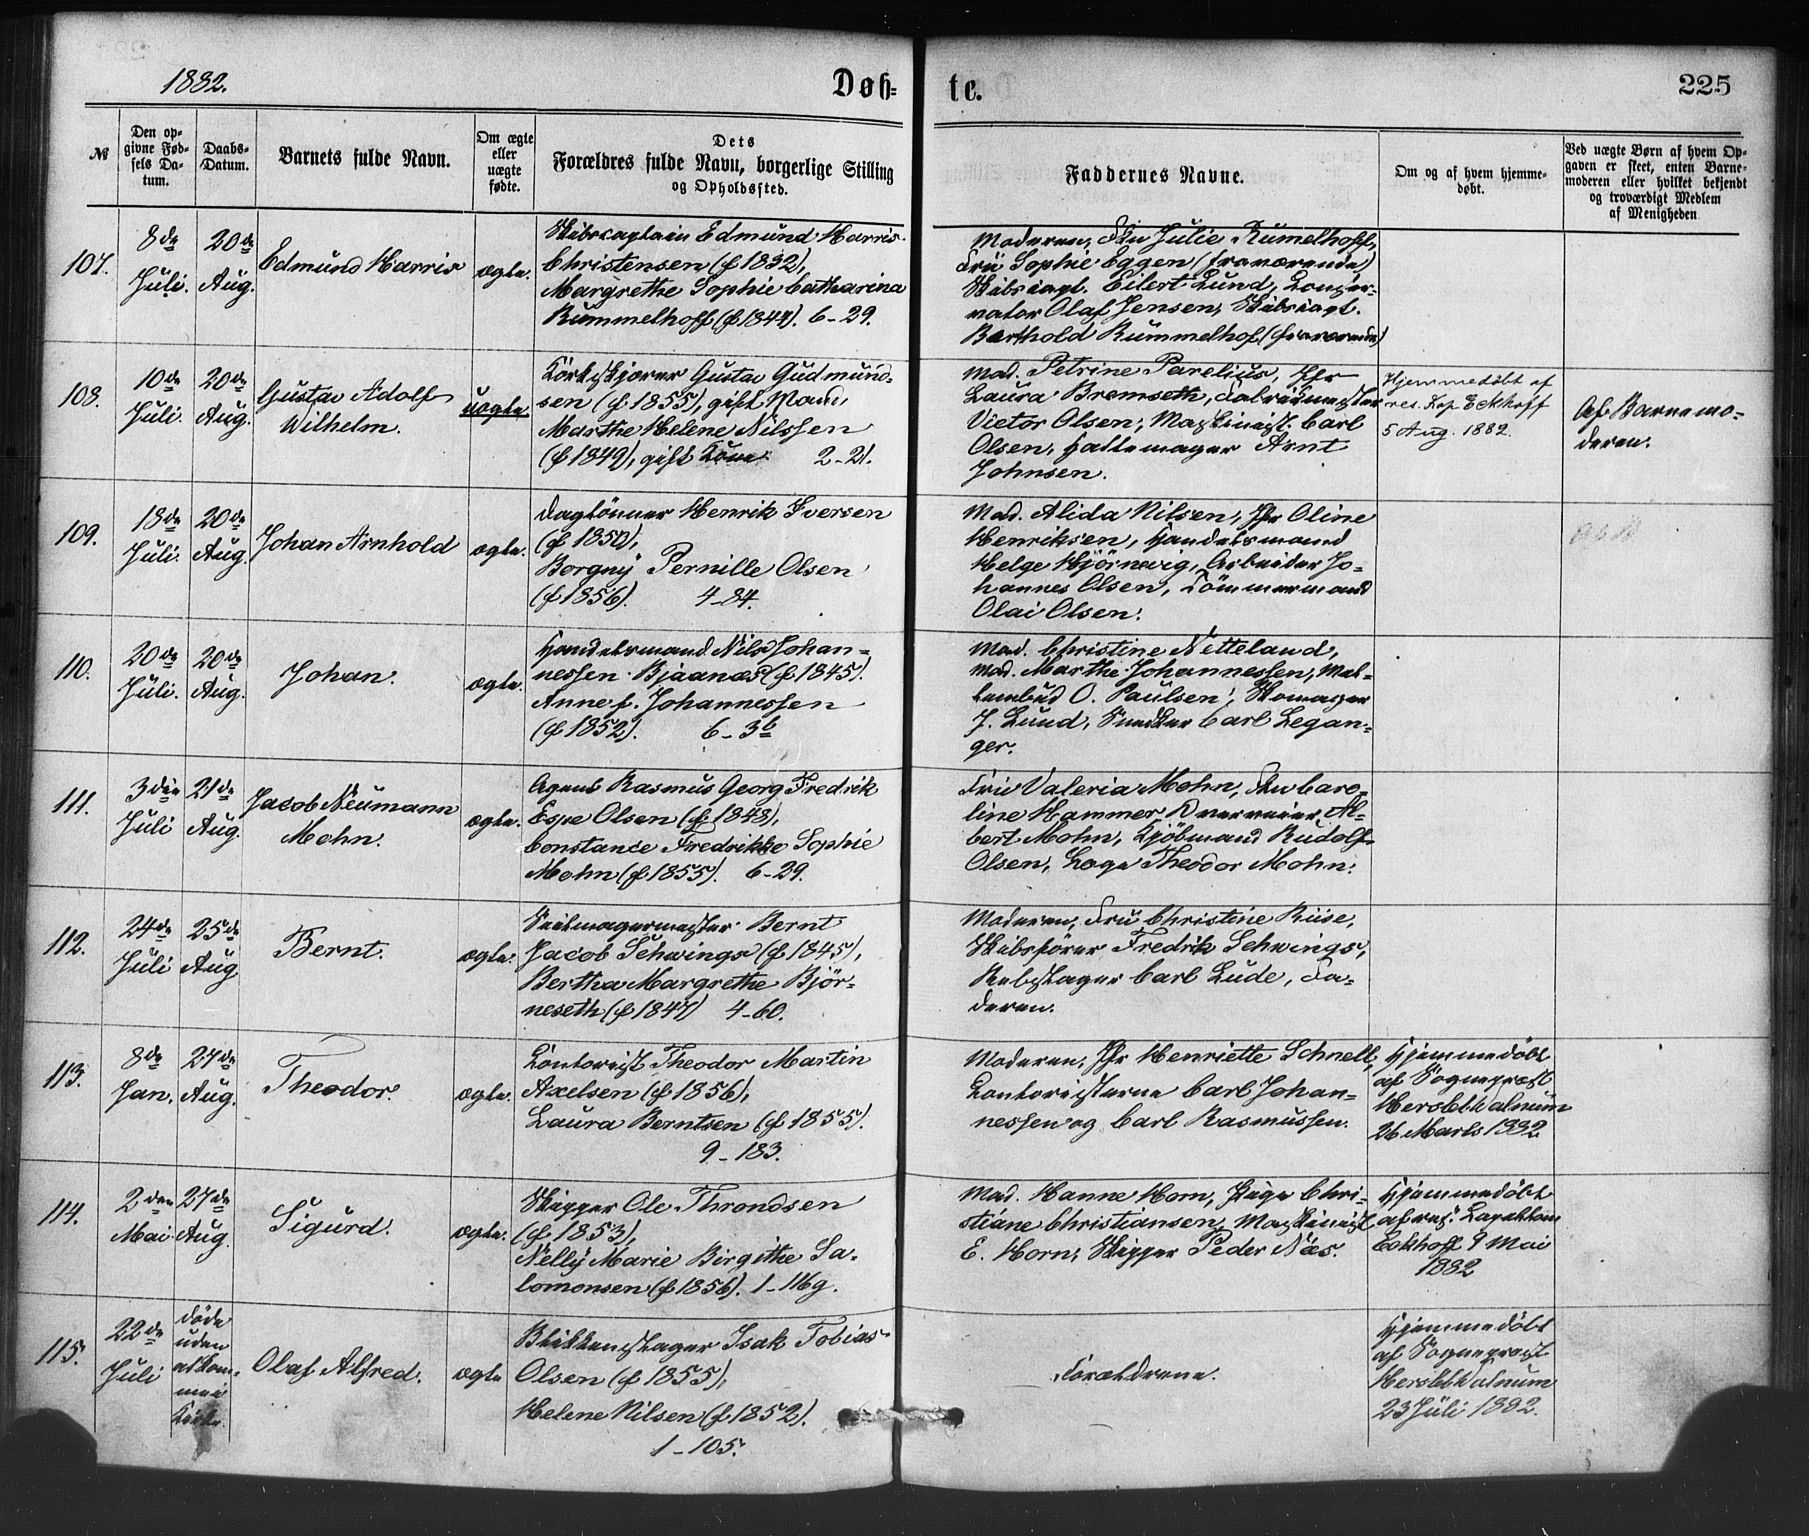 1882.
Døb-
te.
225
№
Den op-
givne Fød-
sels Da-
tum.
Daabs-
Datum.
Barnets fulde Navn.
Om ægte
eller
uægte
fødte.
Dets
Forældres fulde Navn, borgerlige Stilling
og Opholdssted.
Faddernes Navne.
Om og af hvem hjemme-
døbt.
Ved uægte Børn af hvem Op-
gaven er skeet, enten Barne-
moderen eller hvilket bekjendt
og troværdigt Medlem
af Menigheden
107.
8de
Juli.
20de
Aug.
Edmund Harris
ægte.
Skibscaptain Edmund Harris
Christensen (f 1832),
Margrethe Sophie Catharina
Rummelhoff (f 1844). 6-29.
Moderen, Fru Julie Rumelhoff,
Fru Sophie Eggen (fraværende)
Skibscapt. Eilert Lund, Conser-
vator Olaf Jensen, Skibscapt.
Barthold Rummelhof (fraværende)
108.
10de
Juli.
20de
Aug.
Gustav Adolf
Wilhelm.
uægte.
Korkskjærer Gustav Gudmund-
sen (f. 1855), gift Mand,
Marthe Helene Nilssen
(f 1849), gift Kone. 2-21.
Mad. Petrine Parelius, Jfr
Laura Bremseth, Fabrikmester
Victor Olsen, Maskinist Carl
Olsen, Hattemager Arnt
Johnsen.
Hjemmedøbt af
res. Kap Eckhoff
5 Aug. 1882.
Af Barnemo-
deren.
109.
18de
Juli.
20de
Aug.
Johan Arnhold
ægte.
Daglönner Henrik Iversen
(f 1850),
Borgny Pernille Olsen
(f 1856). 4-84.
Mad. Alida Nilsen, Jfr Oline
Henriksen, Handelsmand
Helge Hjörnevig, Arbeider Jo-
hannes Olsen, Tömmermand
Olai Olsen.
110.
20de
Juli.
20de
Aug.
Johan.
ægte.
Handelsmand Nils Johan-
nessen Bjaanæs (f 1845).
Anne f. Johannessen
(f 1852). 6-3b
Mad. Christine Netteland,
Mad. Marthe Johannessen, Mæl-
kembud O. Paulsen, Skomager
J. Lund, Snedker Carl Legan-
ger.
111.
3die
Juli
21de
Aug.
Jacob Neumann
Mohn.
ægte.
Agent Rasmus Georg Fredrik
Espe Olsen (f 1848),
Constance Fredrikke Sophie
Mohn (f 1853). 6-29.
Fru Valeria Mohn, Fru Caro-
line Hammer, Overveier Al-
bert Mohn, Kjöbmand Rudolf
Olsen, Læge Theodor Mohn.
112.
24de
Juli
25de
Aug
Bernt.
ægte.
Seilmagermester Bernt
Jacob Schwings (f 1845),
Bertha Margrethe Björ-
neseth (f 1847) 4-60.
Moderen, Fru Christine Riise,
Skibsförer Fredrik Schwings,
Rebslager Carl Lude, Fa-
deren.
113.
8de
Jan.
27de
Aug.
Theodor.
ægte.
Contorist Theodor Martin
Axelsen (f 1856),
Laura Berntsen (f 1855).
9-183.
Moderen, Jfr Henriette Schnell,
Contoristerne Carl Johan-
nessen og Carl Rasmussen.
Hjemmedöbt
af Sognepræst
Hersleb Walnum
26 Marts 1882
114.
2den
Mai
27de
Aug.
Sigurd.
ægte.
Skipper Ole Throndsen
(f 1853),
Nelly Marie Birgithe Sa-
lomonsen (f 1856). 1-116g.
Mad. Hanne Horn, Pige Chri-
stiane Christiansen, Maskinist
E. Horn, Skipper Peder Næs.
Hjemmedöbt
af res. Capellan
Eckhoff 9 Mai
1882
115.
22de
Juli
døde
uden
at kom-
me i
Kirke.
Olaf Alfred.
ægte
Blikkenslager Isak Tobias
Olsen (f 1855),
Helene Nilsen (f 1852).
1-105.
Forældrene.
Hjemmedöbt
af Sognepræst
Hersleb Walnum
23 Juli 1882.